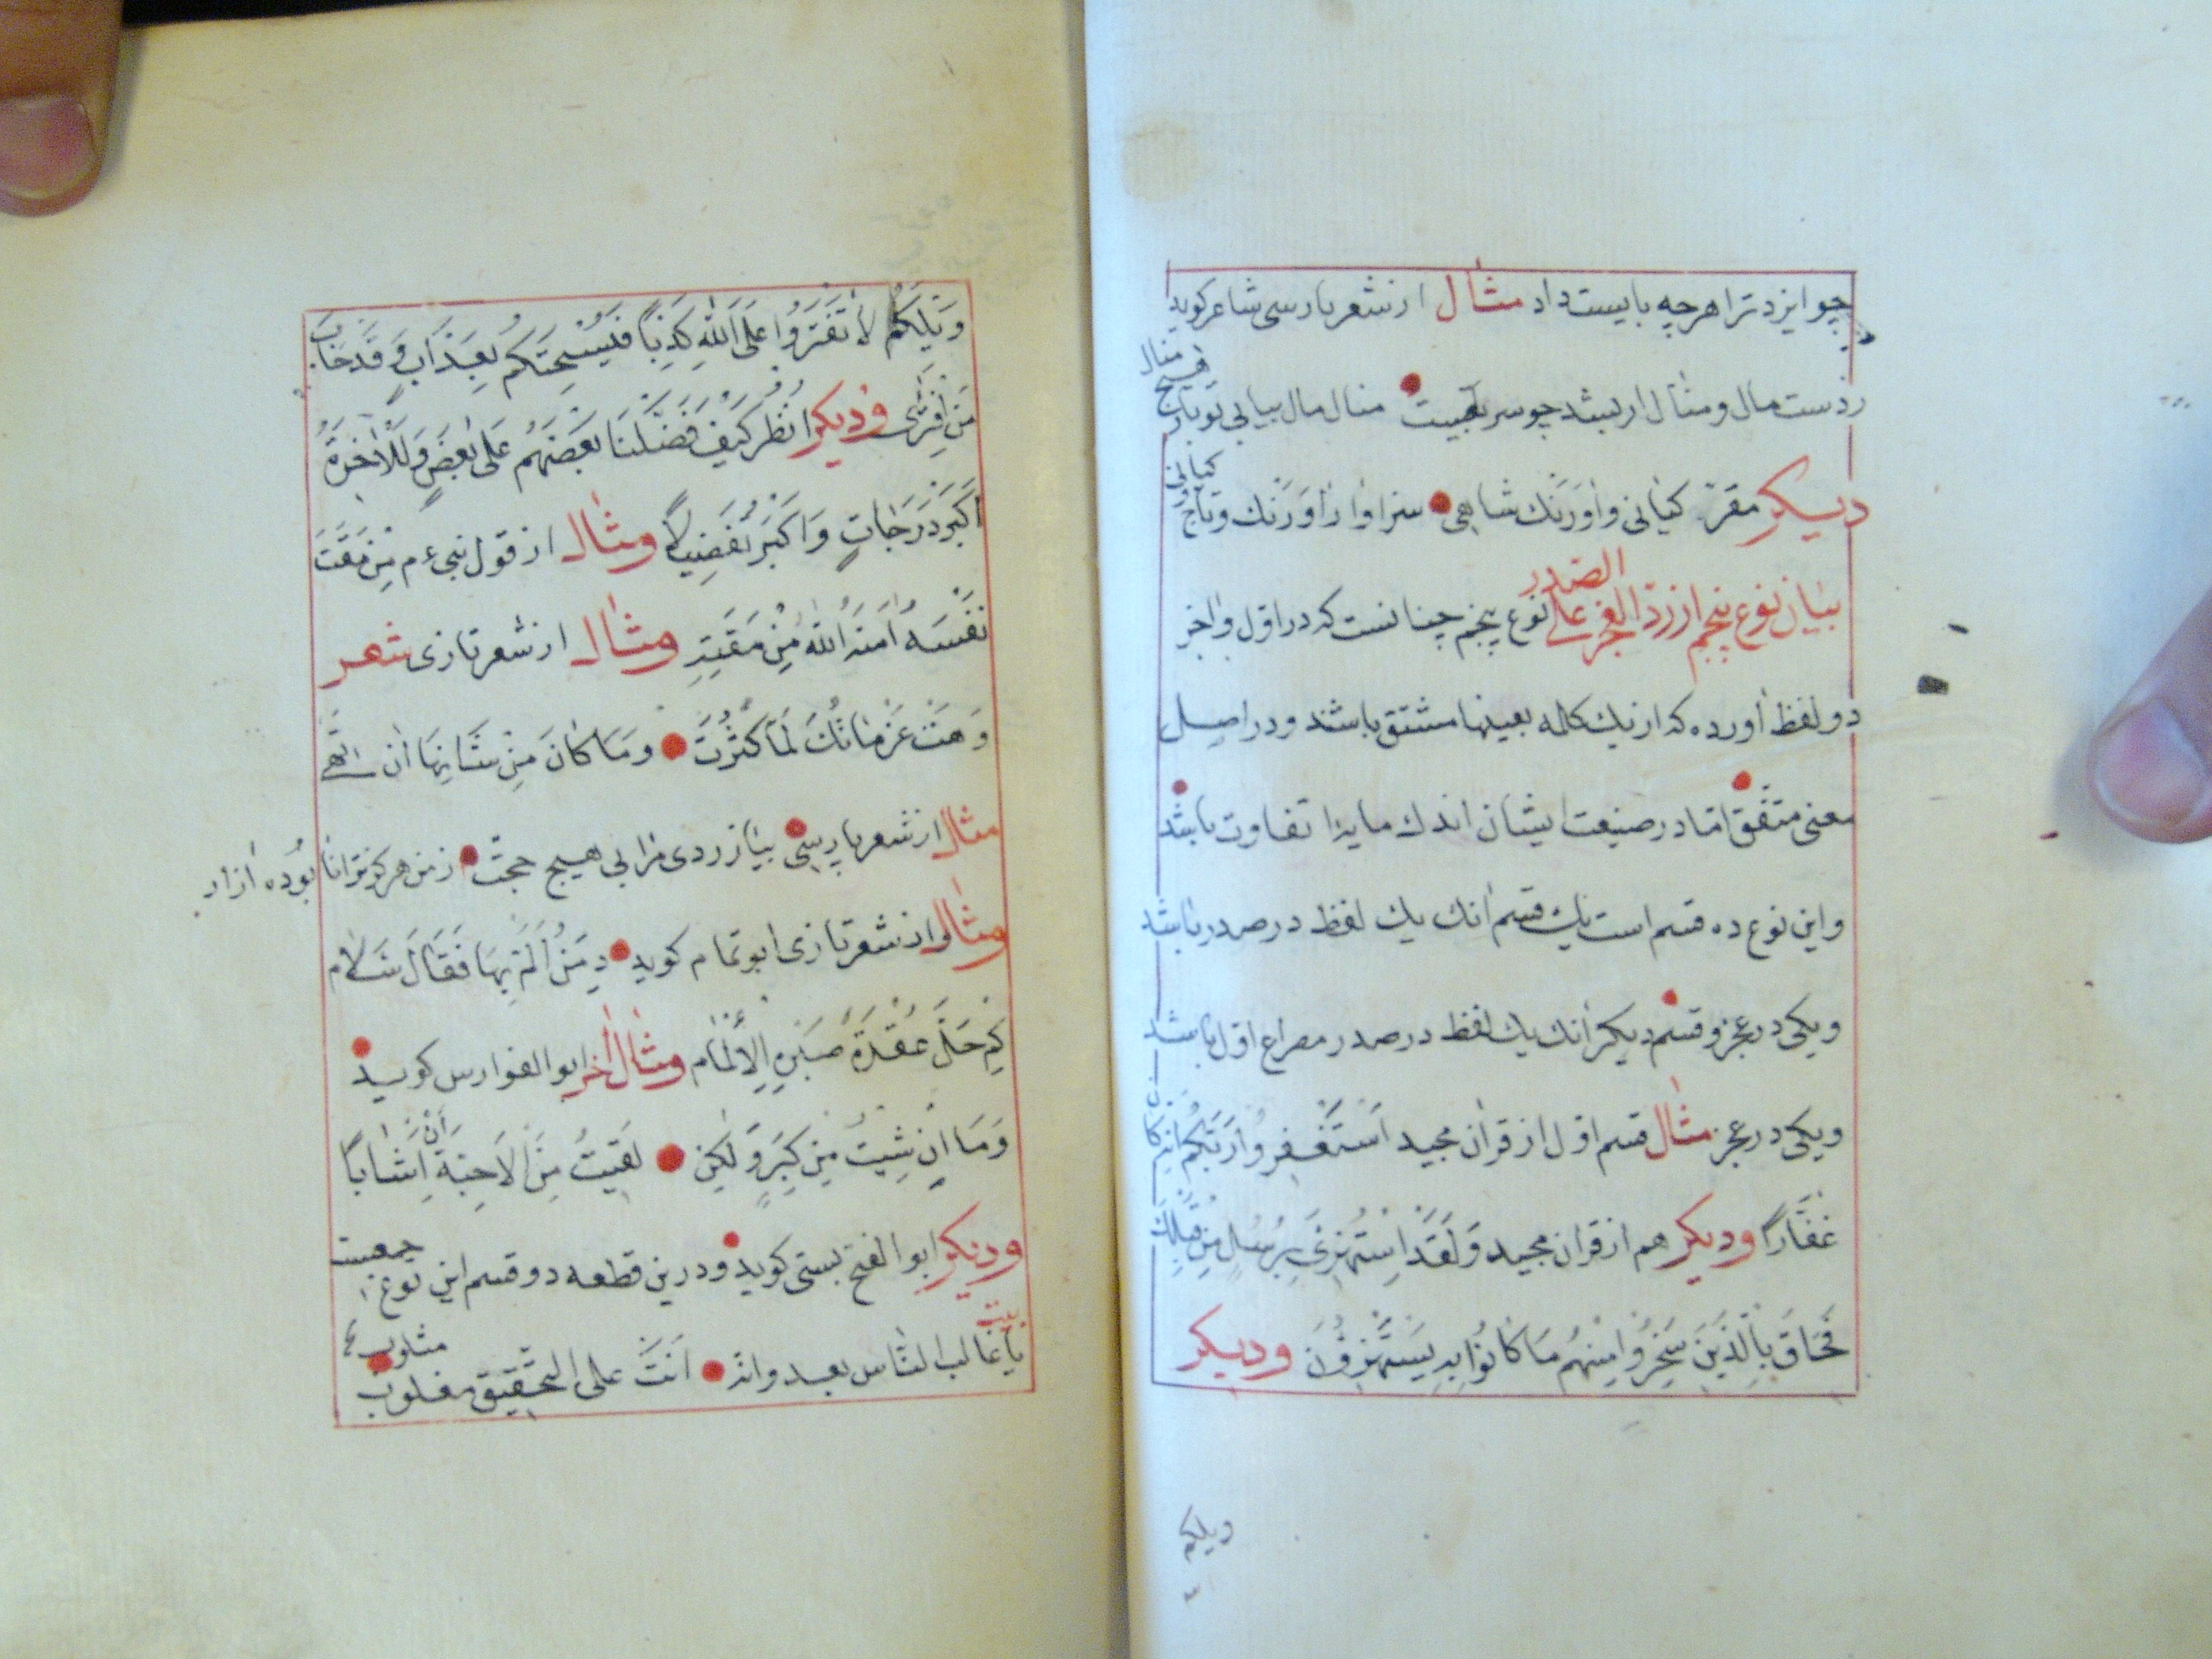 چو ایزد ترا هرچه بایست داد مثال از شعر پارسی شاعر کوید
زدست مال ومنال ار بشد چو سر بجیبیت منال مال بیابی تو باز
منال
دیکر مقرّ کیانی واورنك شاهی سزاوار اورنك وتاج
کیانی
بیان نوع پنجم از ردّ العجز علی الصّدر نوع پنجم چنانست که در اوّل واخر
دو لفظ آورده که از یك کلمه بعینها مشتق باشند ودر اصل
معنی متّفق امّا در صیغت ایشان اندك مایه تفاوت باشد
واین نوع ده قسم است یك قسم انك یك لفظ در صدر باشد
ویکی در عجز وقسم دیکر انك یك لفظ در صدر مصراع اوّل باشد
ویکی در عجز مثال قسم اوّل از قران مجید اَسْتَغْفِرُوا رَبَّكُمْ اِنَّهُ كَانَ
غَفَّارًا ودیکر هم از قران مجید وَلَقَدْ اسْتُهْزِئَ بِرُسُلٍ مِنْ قَبْلِكَ
فَحَاقَ بِالَّذِينَ سَخِرُوا مِنْهُمْ مَا كَانُوا بِهِ يَسْتَهْزِؤُنَ ودیکر
ویلکم
وَيْلَكُمْ لاَ تَفْتَرُوا عَلَى اللهِ كَذِبًا فَيُسْحِتَكُمْ بِعَذَابٍ وَقَدْ خَابَ
مَنْ اِفْتَرٰى ودیکر اُنْظُرْ كَيْفَ فَضَّلْنَا بَعْضَهُمْ عَلَى بَعْضٍ وَلَلْاٰخِرَةُ
اَكْبَرُ دَرَجَاتٍ وَاَكْبَرُ تَفْضِيلاً ومثال از قول نبی ءم مِنْ مَقَتَ
نَفْسَهُ اٰمَنَهُ اللهُ مِنْ مَقْتِهِ ومثال از شعر تازی شعر
وَهَتْ عَزَمَاتُكَ لَمَّا كَبُرْتَ وَمَا كَانَ مِنْ شَانِهَا اَنْ تَهِي
مثال از شعر پارسی بیازردی مرا بی هیچ حجّت زمن هرکز ترانا بوده آزار
ومثال واز شعر تازی ابو تمام کوید دِمَنٌ اَلَمَّ بِهَا فَقَالَ سَلاَم
كَمْ حَلَّ عُقْدَةَ صَبْرِهِ الإِلْمَام ومثال اخر ابو الفوارس کوید
وَمَا اِنْ شِبْتُ مِنْ كِبَرٍ وَلٰكِنْ لَقِيتُ مِنَ الاَحِبَّةِ مَا اَشَابَا
ودیکر ابو الفتح بستی کوید ودرین قطعه دو قسم این نوع جمعست
بیت
یا غالب النّاس بعدوانه اَنْتَ علی التّحقیق مغلوب